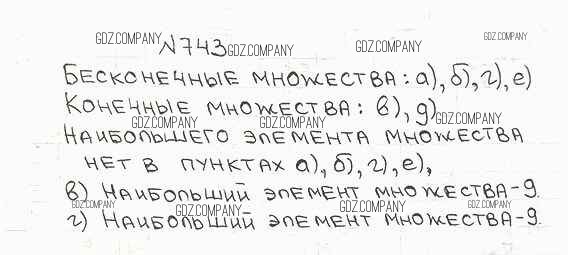 GDZ.COMPANY GDZ.COMPANY
№743 GDZ.COMPANY GDZ.COMPANY
БЕСКОНЕЧНЫЕ МНОЖЕСТВА: а), б), г), е)
КОНЕЧНЫЕ МНОЖЕСТВА: в), д)
GDZ.COMPANY GDZ.COMPANY GDZ.COMPANY
НАИБОЛЬШЕГО ЭЛЕМЕНТА МНОЖЕСТВА
НЕТ В ПУНКТАХ а), б), г), е),
в) НАИБОЛЬШИЙ ЭЛЕМЕНТ МНОЖЕСТВА-9.
GDZ.COMPANY GDZ.COMPANY GDZ.COMPANY GDZ.COMPANY
г) НАИБОЛЬШИЙ ЭЛЕМЕНТ МНОЖЕСТВА-9.